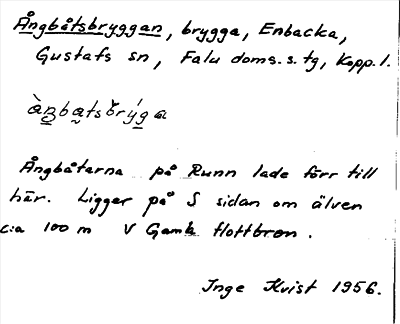 Ångbåtsbryggan, brygga, Enbacka,
Gustafs sn, Falu doms. s. tg, Kopp. l.
Ångbåtarna på Runn lade förr till
här. Ligger på S sidan om älven
c:a 100 m V Gamla flottbron.
Inge Kvist 1956.